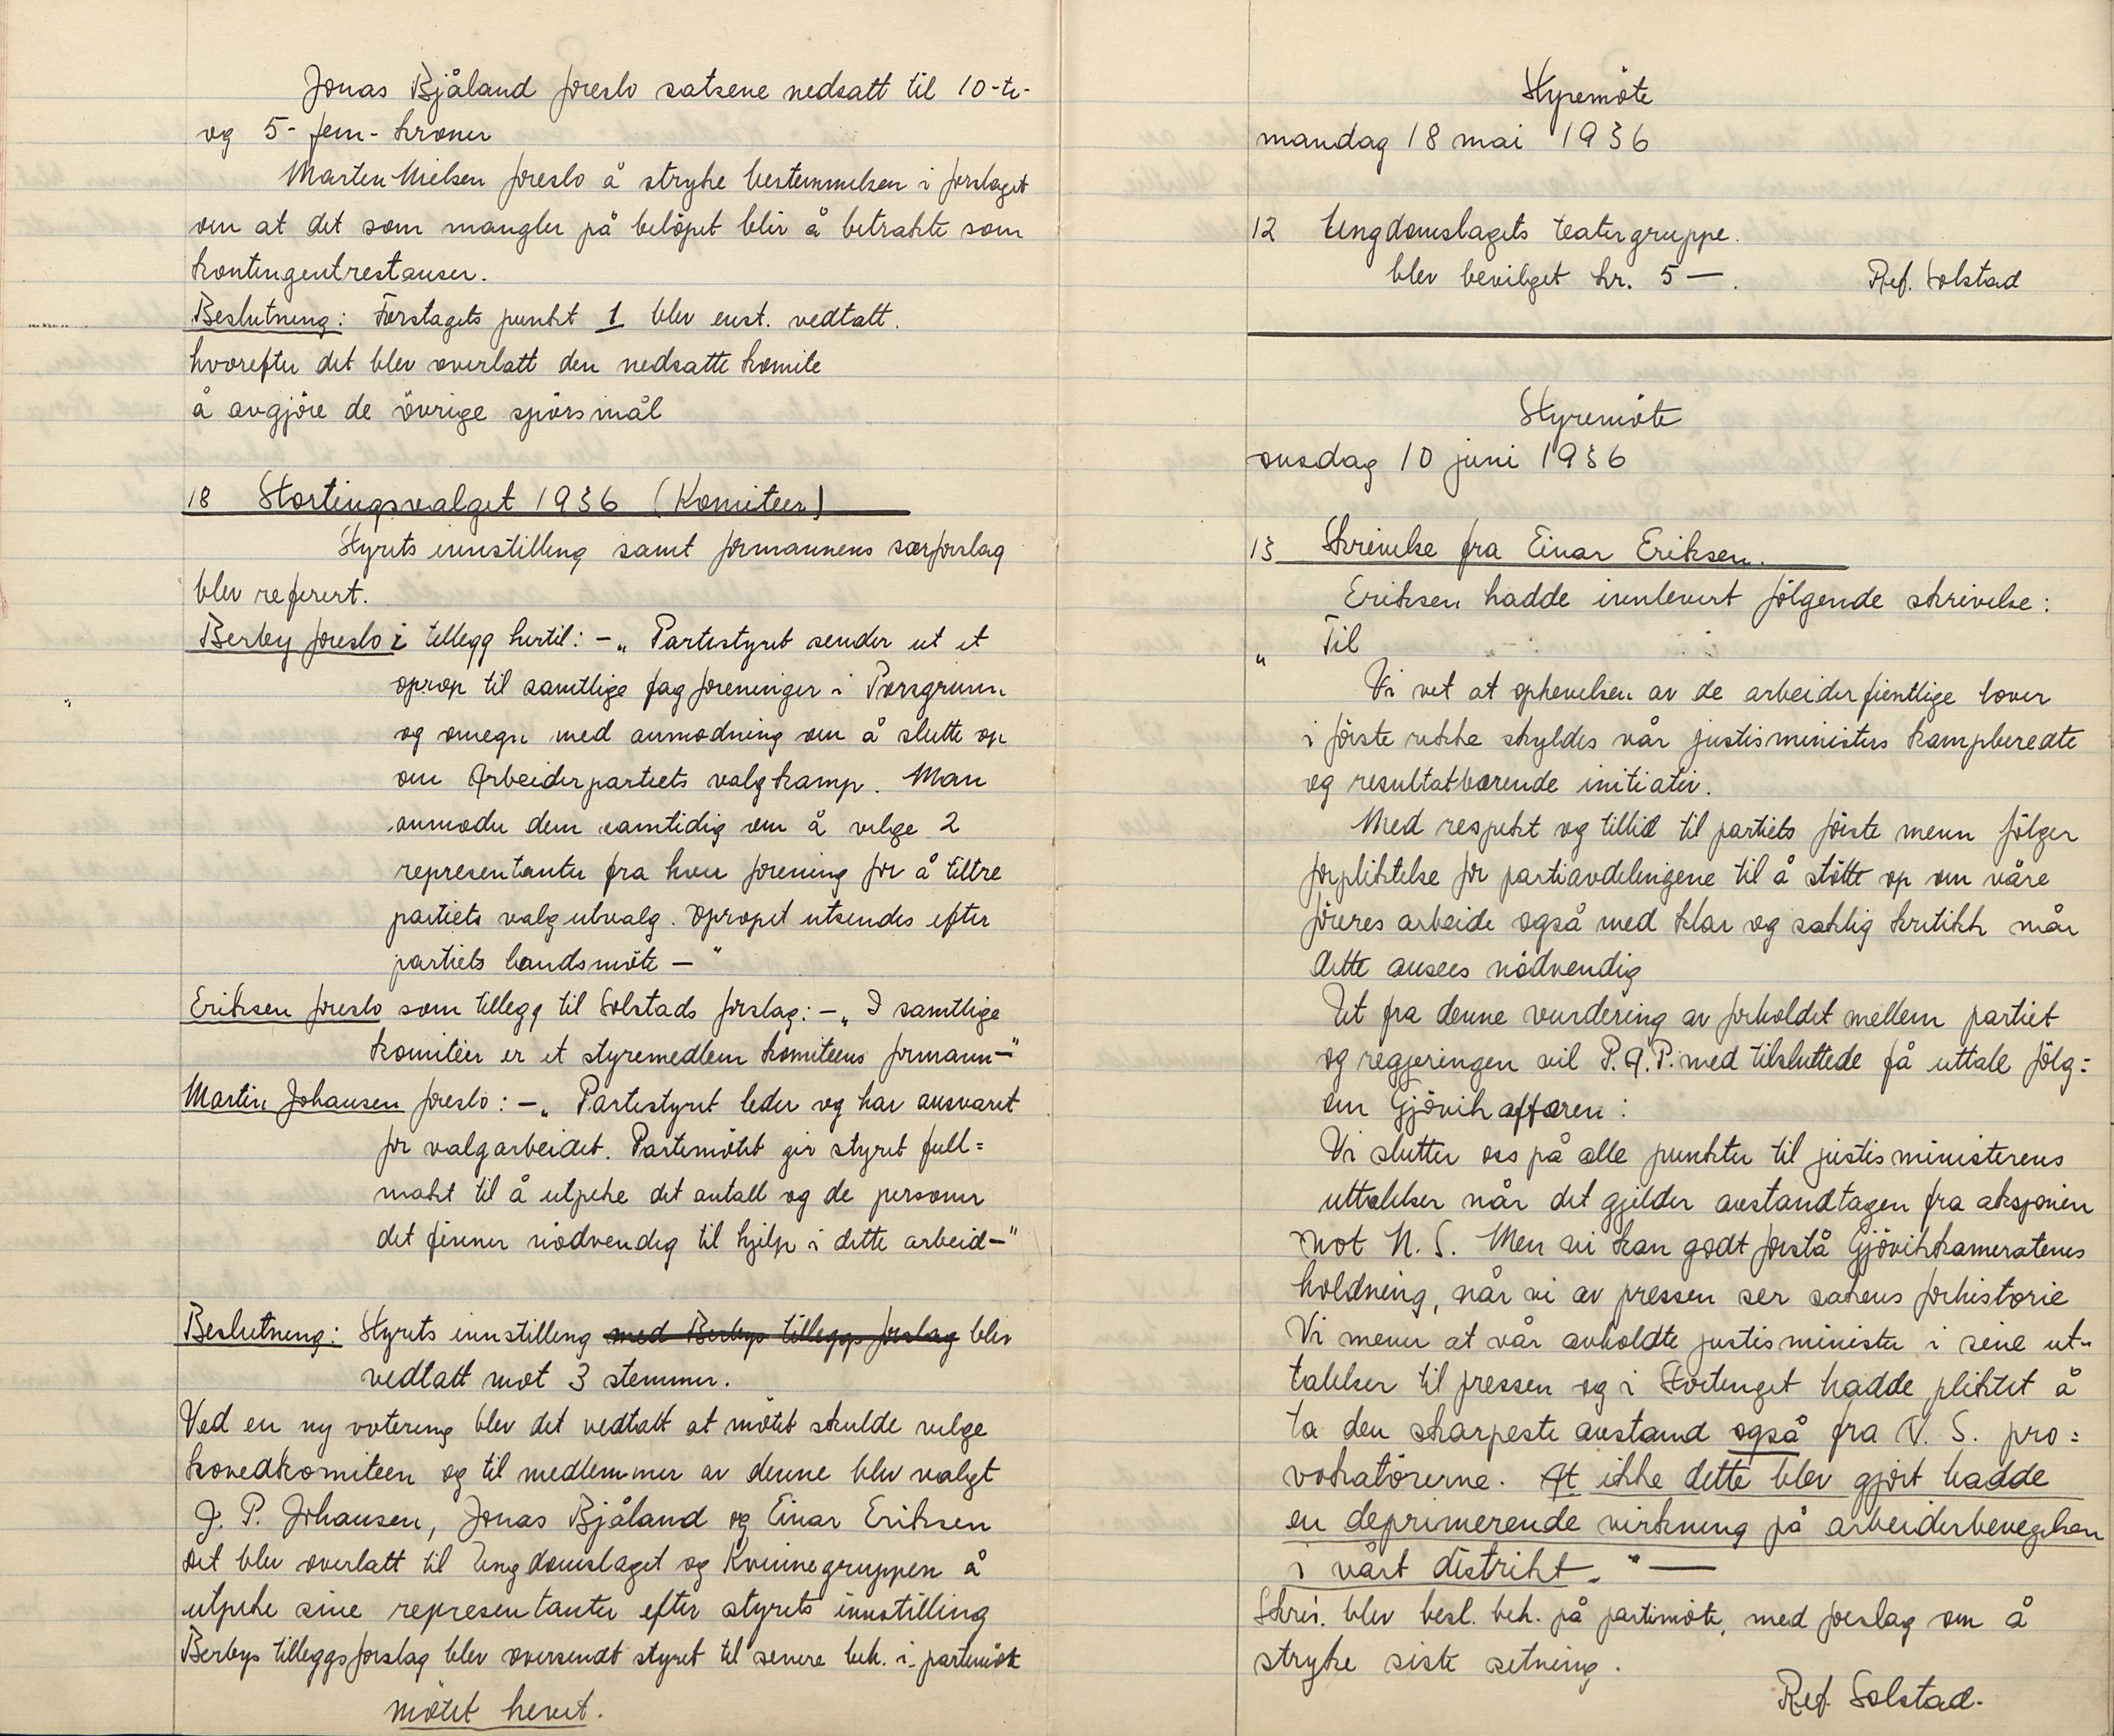 Jonas Bjåland foreslo satsene nedsatt til 10-ti-
og 5-fem-kroner
Marten Nielsen foreslo å stryke bestemmelsen i forslaget
om at det som mangler på belöpet blir å betrakte som
kontingentrestanser.
Beslutning: Forslagets punkt 1 blev enst. vedtatt.
hvorefter det blev overlatt den nedsatte komite
å avgjöre de övrige spörsmål
18 Stortingsvalget 1936 (Komiteer)
Styrets innstilling samt formannens særforslag
blev referert.
Berby foreslo i tillegg hertil: - „ Partistyret sender ut et
oprop til samtlige fagforeninger i Porsgrunn
og omegn med anmodning om å slutte op
om Arbeiderpartiets valgkamp. Man
anmoder dem samtidig om å velge 2
representanter fra hver forening for å tiltre
partiets valgutvalg. Opropet utsendes efter
partiets landsmöte - "
Eriksen foreslo som tillegg til Solstads forslag: - „ I samtlige
komitéer er et styremedlem komiteens formann-"
Martin Johansen foreslo: - „ Partistyret leder og har ansvaret
for valgarbeidet. Partimötet gir styret full=
makt til å utpeke det antall og de personer
det finner nödvendig til hjelp i dette arbeid-"
Beslutning: Styrets innstilling med Berbys tilleggsforslag blev
vedtatt mot 3 stemmer.
Ved en ny votering blev det vedtatt at mötet skulde velge
hovedkomiteen og til medlemmer av denne blev valgt
J. P. Johansen, Jonas Bjåland og Einar Eriksen
Det blev overlatt til Ungdomslaget og Kvinnegruppen å
utpeke sine representanter efter styrets innstilling
Berbys tilleggsforslag blev oversendt styret til senere beh. i partimöte
mötet hevet.
Styremöte
mandag 18 mai 1936
12 Ungdomslagets teatergruppe.
blev bevilget kr. 5 —.
Ref. Solstad
Styremöte
onsdag 10 juni 1936
13 Skrivelse fra Einar Eriksen.
Eriksen hadde innlevert fölgende skrivelse:
„ Til
Vi vet at ophevelsen av de arbeiderfientlige lover
i förste rekke skyldes vår justisministers kampberedte
og resultatbærende initiativ.
Med respekt og tillid til partiets förste menn fölger
forpliktelse for partiavdelingene til å stötte op om våre
föreres arbeide også med klar og saklig kritikk når
dette ansees nödvendig
Ut fra denne vurdering av forholdet mellem partiet
og regjeringen vil P.A.P. med tilsluttede få uttale fölg=
om Gjövikaffæren:
Vi slutter oss på alle punkter til justisministerens
uttalelser når det gjelder avstandtagen fra aksjonen
mot N. S. Men vi kan godt forstå Gjövikkameratenes
holdning, når vi av pressen ser sakens forhistorie
Vi mener at vår avholdte justisminister i sine ut-
talelser til pressen og i Stortinget hadde pliktet å
ta den skarpeste avstand også fra N. S. pro=
vokatörerne. At ikke dette blev gjort hadde
en deprimerende virkning på arbeiderbevegelsen
i vårt distrikt. " —
Skriv. blev besl. beh. på partimöte, med forslag om å
stryke siste setning.
Ref. Solstad.